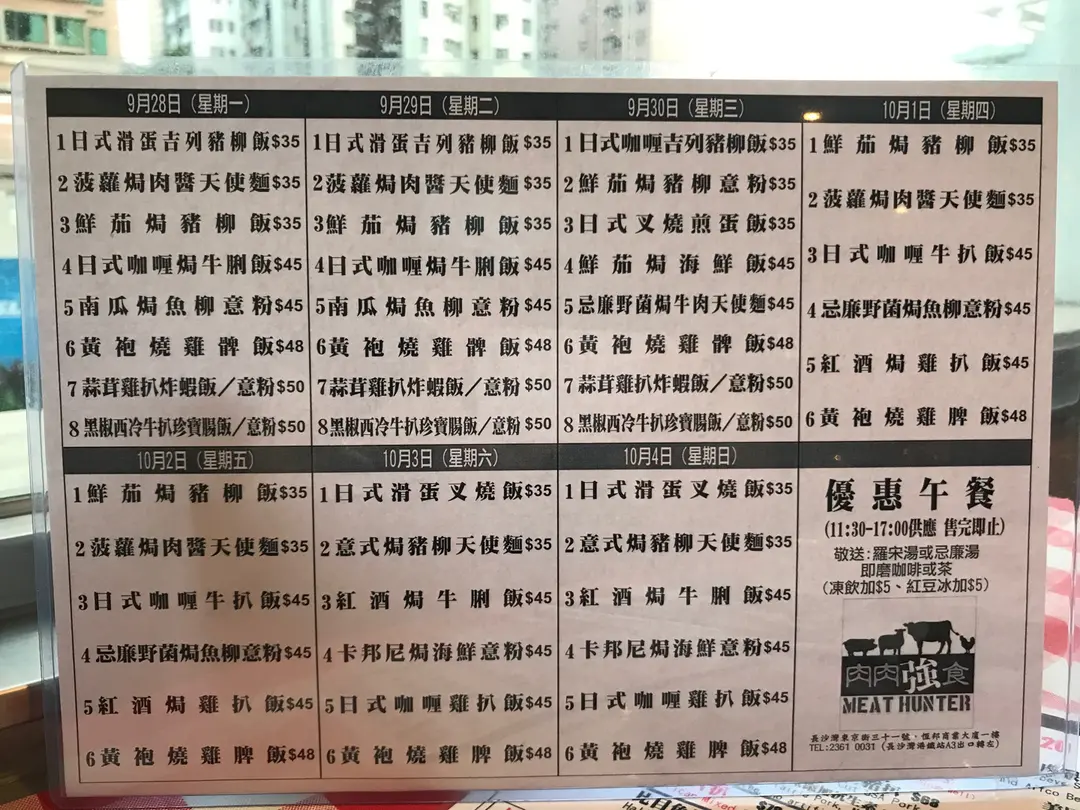 9月28日（星期一）
1日式滑蛋吉列豬柳飯$35
2菠蘿焗肉醬天使麵$35
3鮮茄焗豬柳飯$35
4日式咖喱焗牛脷飯$45
5南瓜焗魚柳意粉$45
6黃袍燒雞髀飯$48
7蒜茸雞扒炸蝦飯／意粉$50
8黑椒西冷牛扒珍寶腸飯／意粉$50
9月29日（星期二）
1日式滑蛋吉列豬柳飯$35
2菠蘿焗肉醬天使麵$35
3鮮茄焗豬柳飯$35
4日式咖喱焗牛脷飯$45
5南瓜焗魚柳意粉$45
6黃袍燒雞髀飯$48
7蒜茸雞扒炸蝦飯／意粉$50
8黑椒西冷牛扒珍寶腸飯／意粉$50
9月30日（星期三）
1日式咖喱吉列豬柳飯$35
2鮮茄焗豬柳意粉$35
3日式叉燒煎蛋飯$35
4鮮茄焗海鮮飯$45
5忌廉野菌焗牛肉天使麵$45
6黃袍燒雞髀飯$48
7蒜茸雞扒炸蝦飯／意粉$50
8黑椒西冷牛扒珍寶腸飯／意粉$50
10月1日（星期四）
1鮮茄焗豬柳飯$35
2菠蘿焗肉醬天使麵$35
3日式咖喱牛扒飯$45
4忌廉野菌焗魚柳意粉$45
5紅酒焗雞扒飯$45
6黃袍燒雞脾飯$48
10月2日（星期五）
1鮮茄焗豬柳飯$35
2菠蘿焗肉醬天使麵$35
3日式咖喱牛扒飯$45
4忌廉野菌焗魚柳意粉$45
5紅酒焗雞扒飯$45
6黃袍燒雞脾飯$48
10月3日（星期六）
1日式滑蛋叉燒飯$35
2意式焗豬柳天使麵$35
3紅酒焗牛脷飯$45
4卡邦尼焗海鮮意粉$45
5日式咖喱雞扒飯$45
6黃袍燒雞脾飯$48
10月4日（星期日）
1日式滑蛋叉燒飯$35
2意式焗豬柳天使麵$35
3紅酒焗牛脷飯$45
4卡邦尼焗海鮮意粉$45
5日式咖喱雞扒飯$45
6黃袍燒雞脾飯$48
優惠午餐
(11:30-17:00供應 售完即止)
敬送:羅宋湯或忌廉湯
即磨咖啡或茶
(凍飲加$5、紅豆冰加$5)
肉肉強食
MEAT HUNTER
長沙灣東京街三十一號，恆邦商業大廈一樓
TEL:2361 0031 (長沙灣港鐵站A3出口轉左)